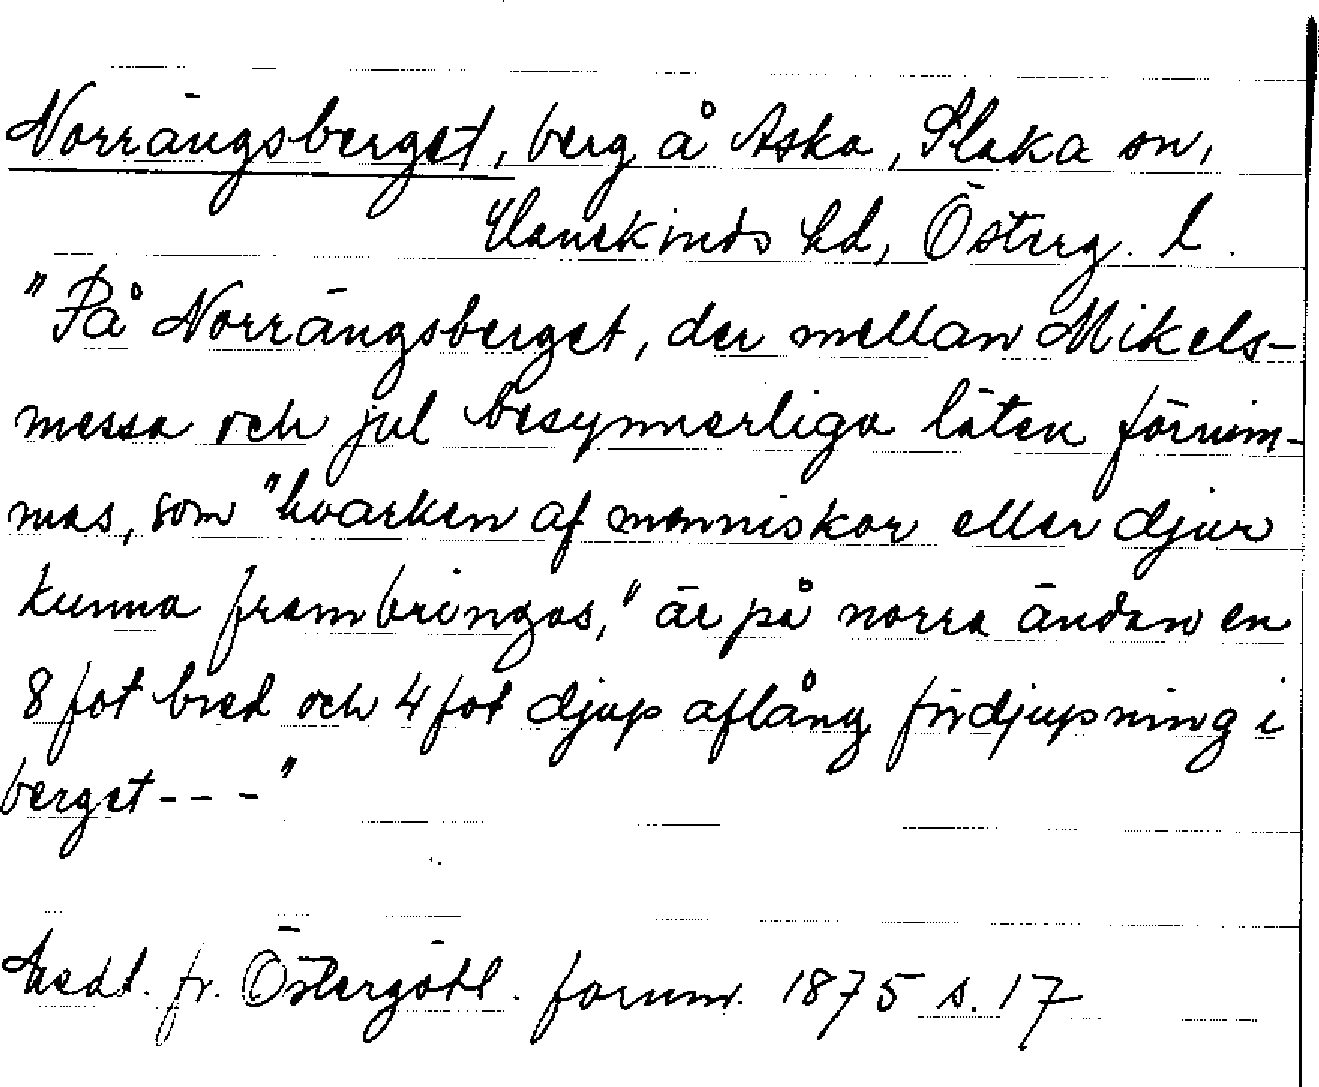 Norrängsberget, berg å Aska, Slaka sn,
Hanekinds hd, Österg. l.
"På Norrängsberget, der mellan Mikels-
messa och jul besynnerliga läten förnim-
mas, som "hvarken af menniskor eller djur
kunna frambringas," är på norra ändan en
8 fot bred och 4 fot djup aflång fördjupning i
berget - - - "
Medd. fr. Östergötl. fornm. 1875 s. 17